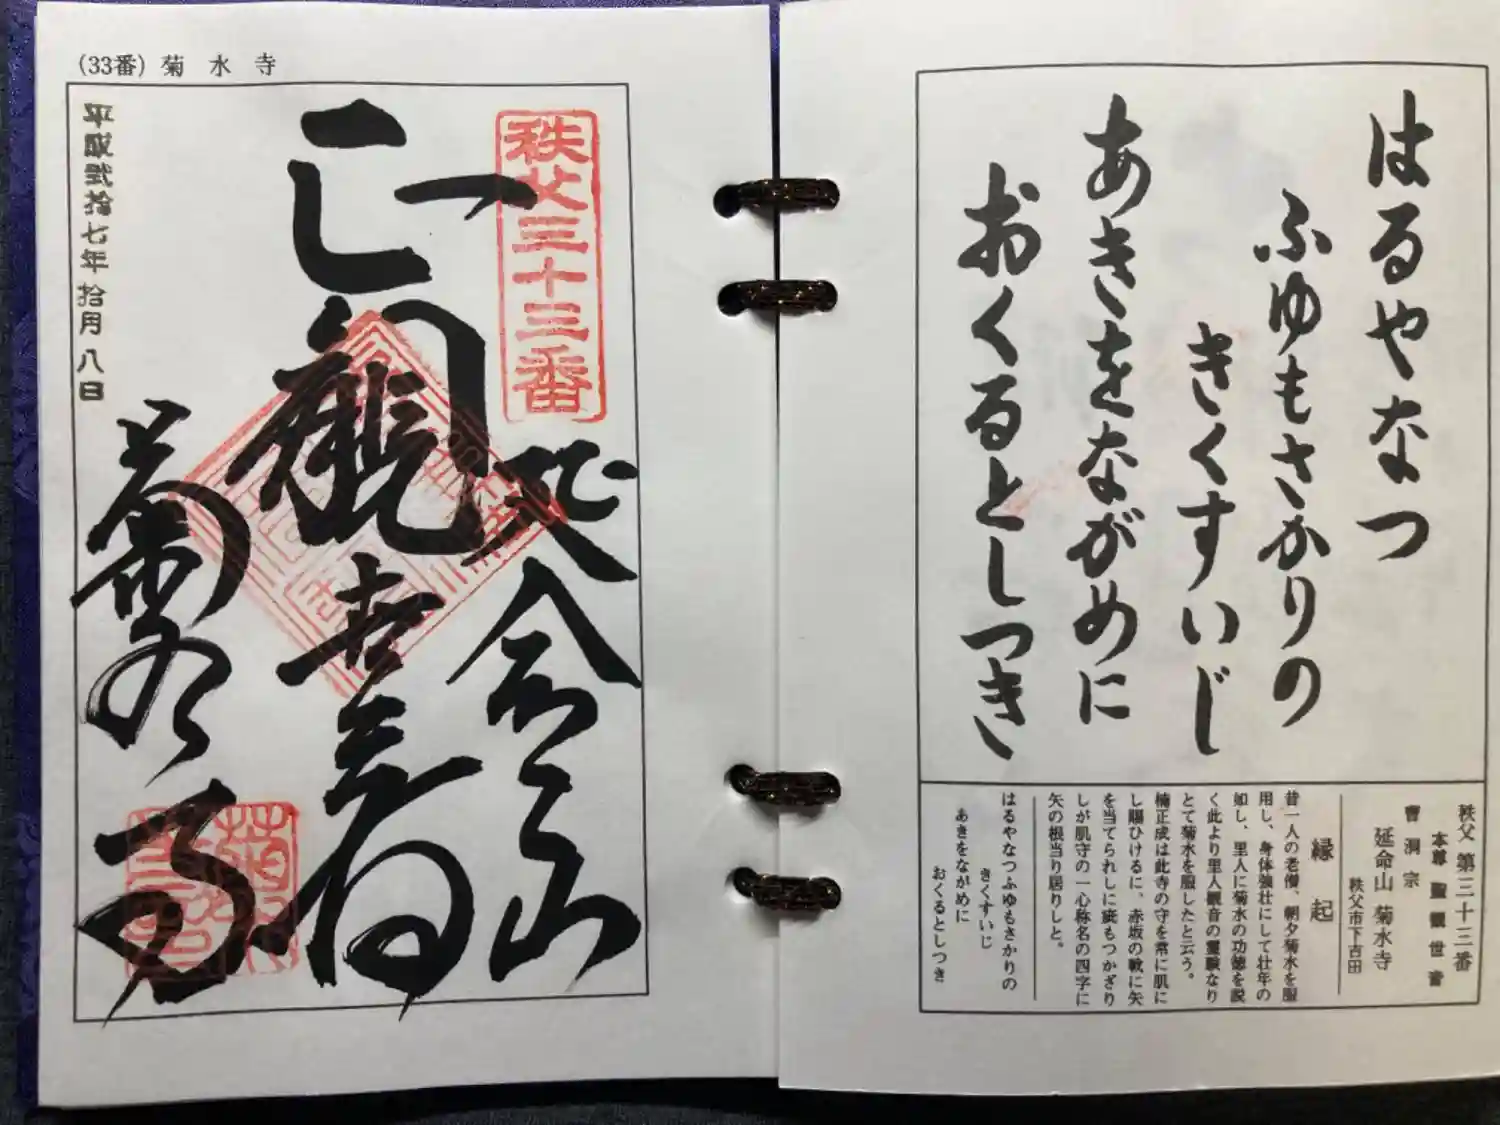 はるやなつ
ふゆもさかりの
きくすいじ
あきをながめに
おくるとしつき
秩父 第三十三番
本尊 聖觀世音
曹洞宗
延命山 菊水寺
秩父市下吉田
縁起
昔一人の老僧、朝夕菊水を服
用し、身体強壮にして壮年の
如し、里人に菊水の功徳を説
く此より里人観音の霊験なり
とて菊水を服したと云う。
楠正成は此寺の守を常に肌に
し賜ひけるに、赤坂の戦に矢
を当てられしに疵もつかざり
しが肌守の一心称名の四字に
矢の根当り居りしと。
はるやなつふゆもさかりの
きくすいじ
あきをながめに
おくるとしつき
(33番) 菊水寺
秩父三十三番
平成弐拾七年拾月八日